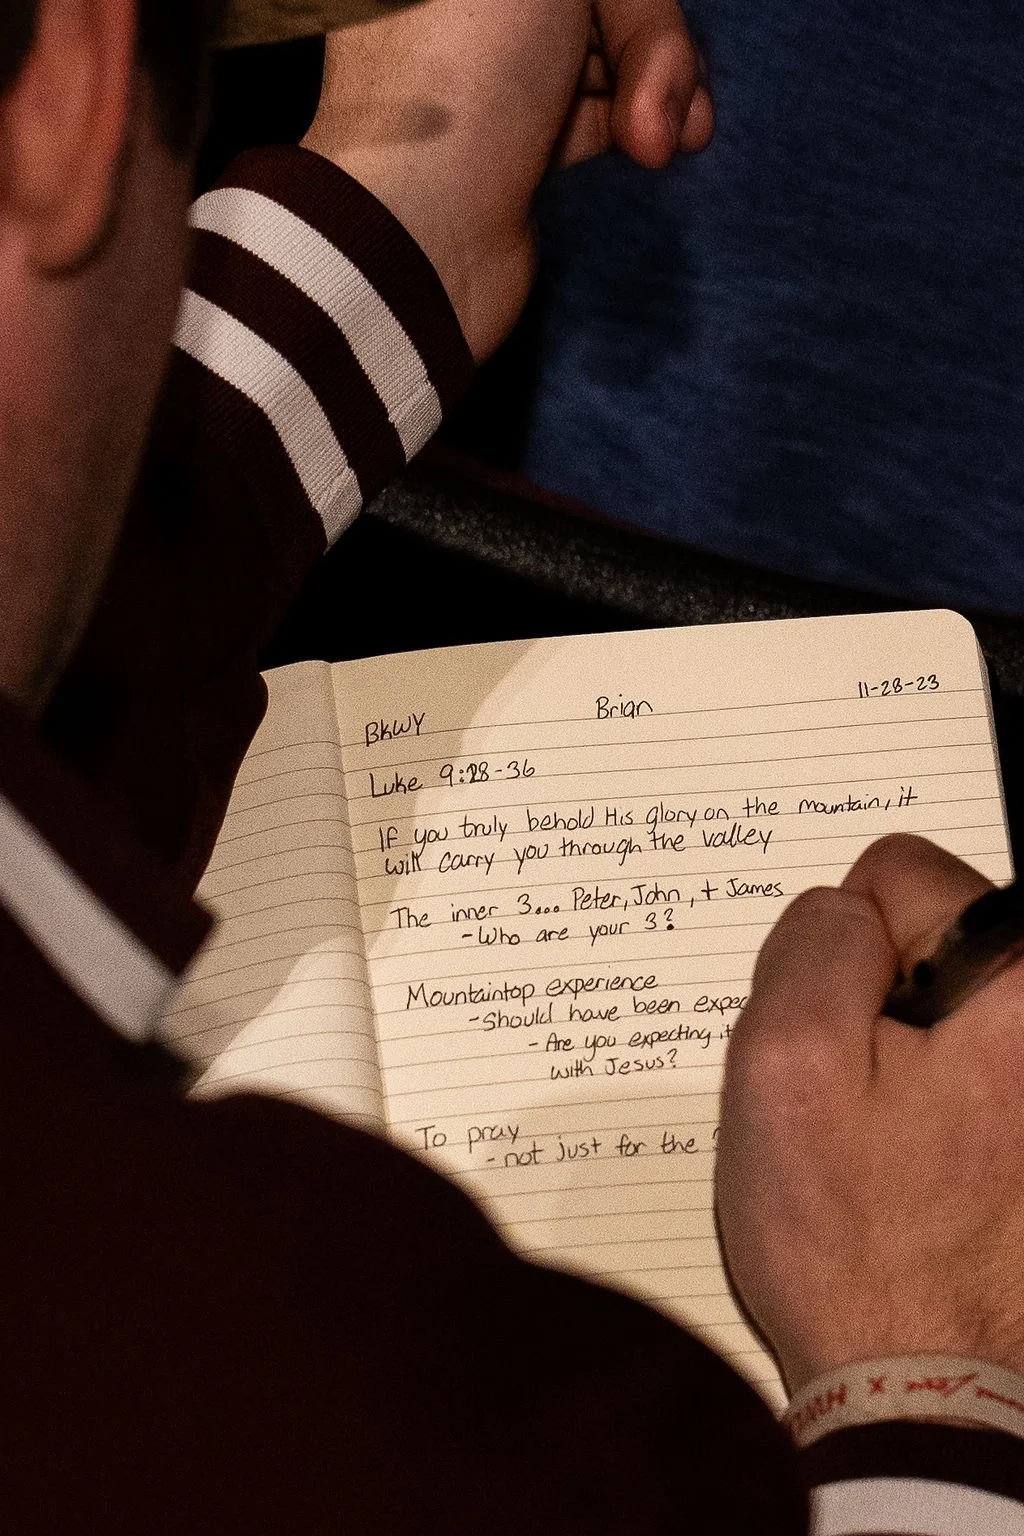 BKWY Brian 11-28-23
Luke 9:28-36
If you truly behold His glory on the mountain, it
will carry you through the valley
The inner 3... Peter, John, + James
- Who are your 3?
Mountaintop experience
- Should have been
- Are you expecting
with Jesus?
To pray
- not just for the
X